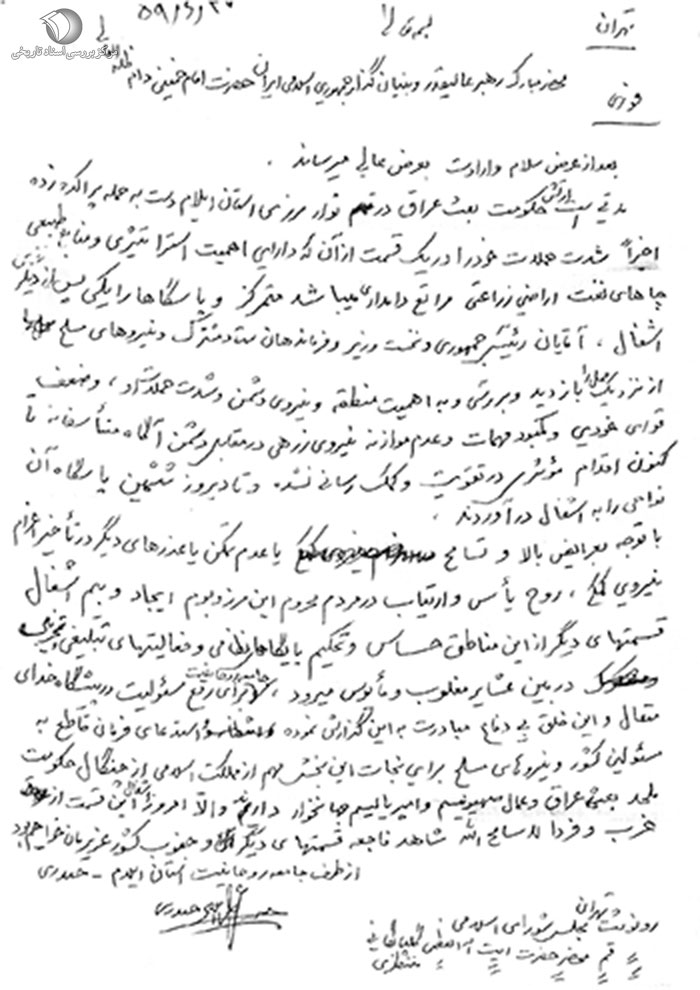 مرکز بررسی اسناد تاریخی
تهران بسمه تعالی ۵۹/۶/۳۰
فوری
محضر مبارک رهبر عالیقدر و بنیان گذار جمهوری اسلامی ایران حضرت امام خمینی دام ظله
بعد از عرض سلام و ارادت بعرض عالی میرساند .
مدتی است ارتش حکومت بعث عراق در نوار مرزی استان ایلام دست به حمله پراکنده زده
اخیراً شدت حملات خود را در یک قسمت از آن که دارای اهمیت استراتیژی و منابع طبیعی
چاهای نفت اراضی زراعتی مراتع دامداری میباشد متمرکز و پاسگاها را یکی پس از دیگری
اشغال ، آقایان رئیس جمهوری و نخست وزیر و فرماندهان ستاد مشترک و نیروهای مسلح
از نزدیک محل را بازدید و بررسی و به اهمیت منطقه و نیروی دشمن و شدت حملات او ، و ضعف
قوای خودی و کمبود مهمات و عدم موازنه نیروی زرهی در مقابل دشمن آگاه متأسفانه تا
کنون اقدام مؤثری در تقویت و کمک رسانی نشده و تا دیروز ششمین پاسگاه آن
نواحی را به اشغال در آوردند .
با توجه بعرایض بالا و تسامح یا عدم تمکن یا عذرهای دیگر در تأخیر اعزام
نیروی کمکی ، روح یأس و ارتیاب در مردم محروم این مرز و بوم ایجاد و بیم اشغال
قسمتهای دیگر از این مناطق حساس و تحکیم پایگاهای نظامی و فعالیتهای تبلیغی تخریبی
در بین عشایر مغلوب و مأیوس میرود ، جامعه روحانیت برای رفع مسئولیت در پیشگاه خدای
متعال و این خلق بی دفاع مبادرت به این گزارش نموده استدعای فرمان قاطع به
مسئولین کشور و نیروهای مسلح برای نجات این بخش مهم از مملکت اسلامی از چنگال حکومت
ملحد بعثی عراق و عمال صهیونیسم و امپریالیسم جهانخوار دارند والا امروز اشغال این قسمت از
غرب و فردا لا سامح الله شاهد فاجعه قسمتهای دیگر و جنوب کشور عزیزمان خواهیم بود
از طرف جامعه روحانیت استان ایلام - حیدری
حیدری
رونوشت تهران مجلس شورای اسلامی
قم محضر حضرت آیت الله العظمی گلپایگانی
منتظری